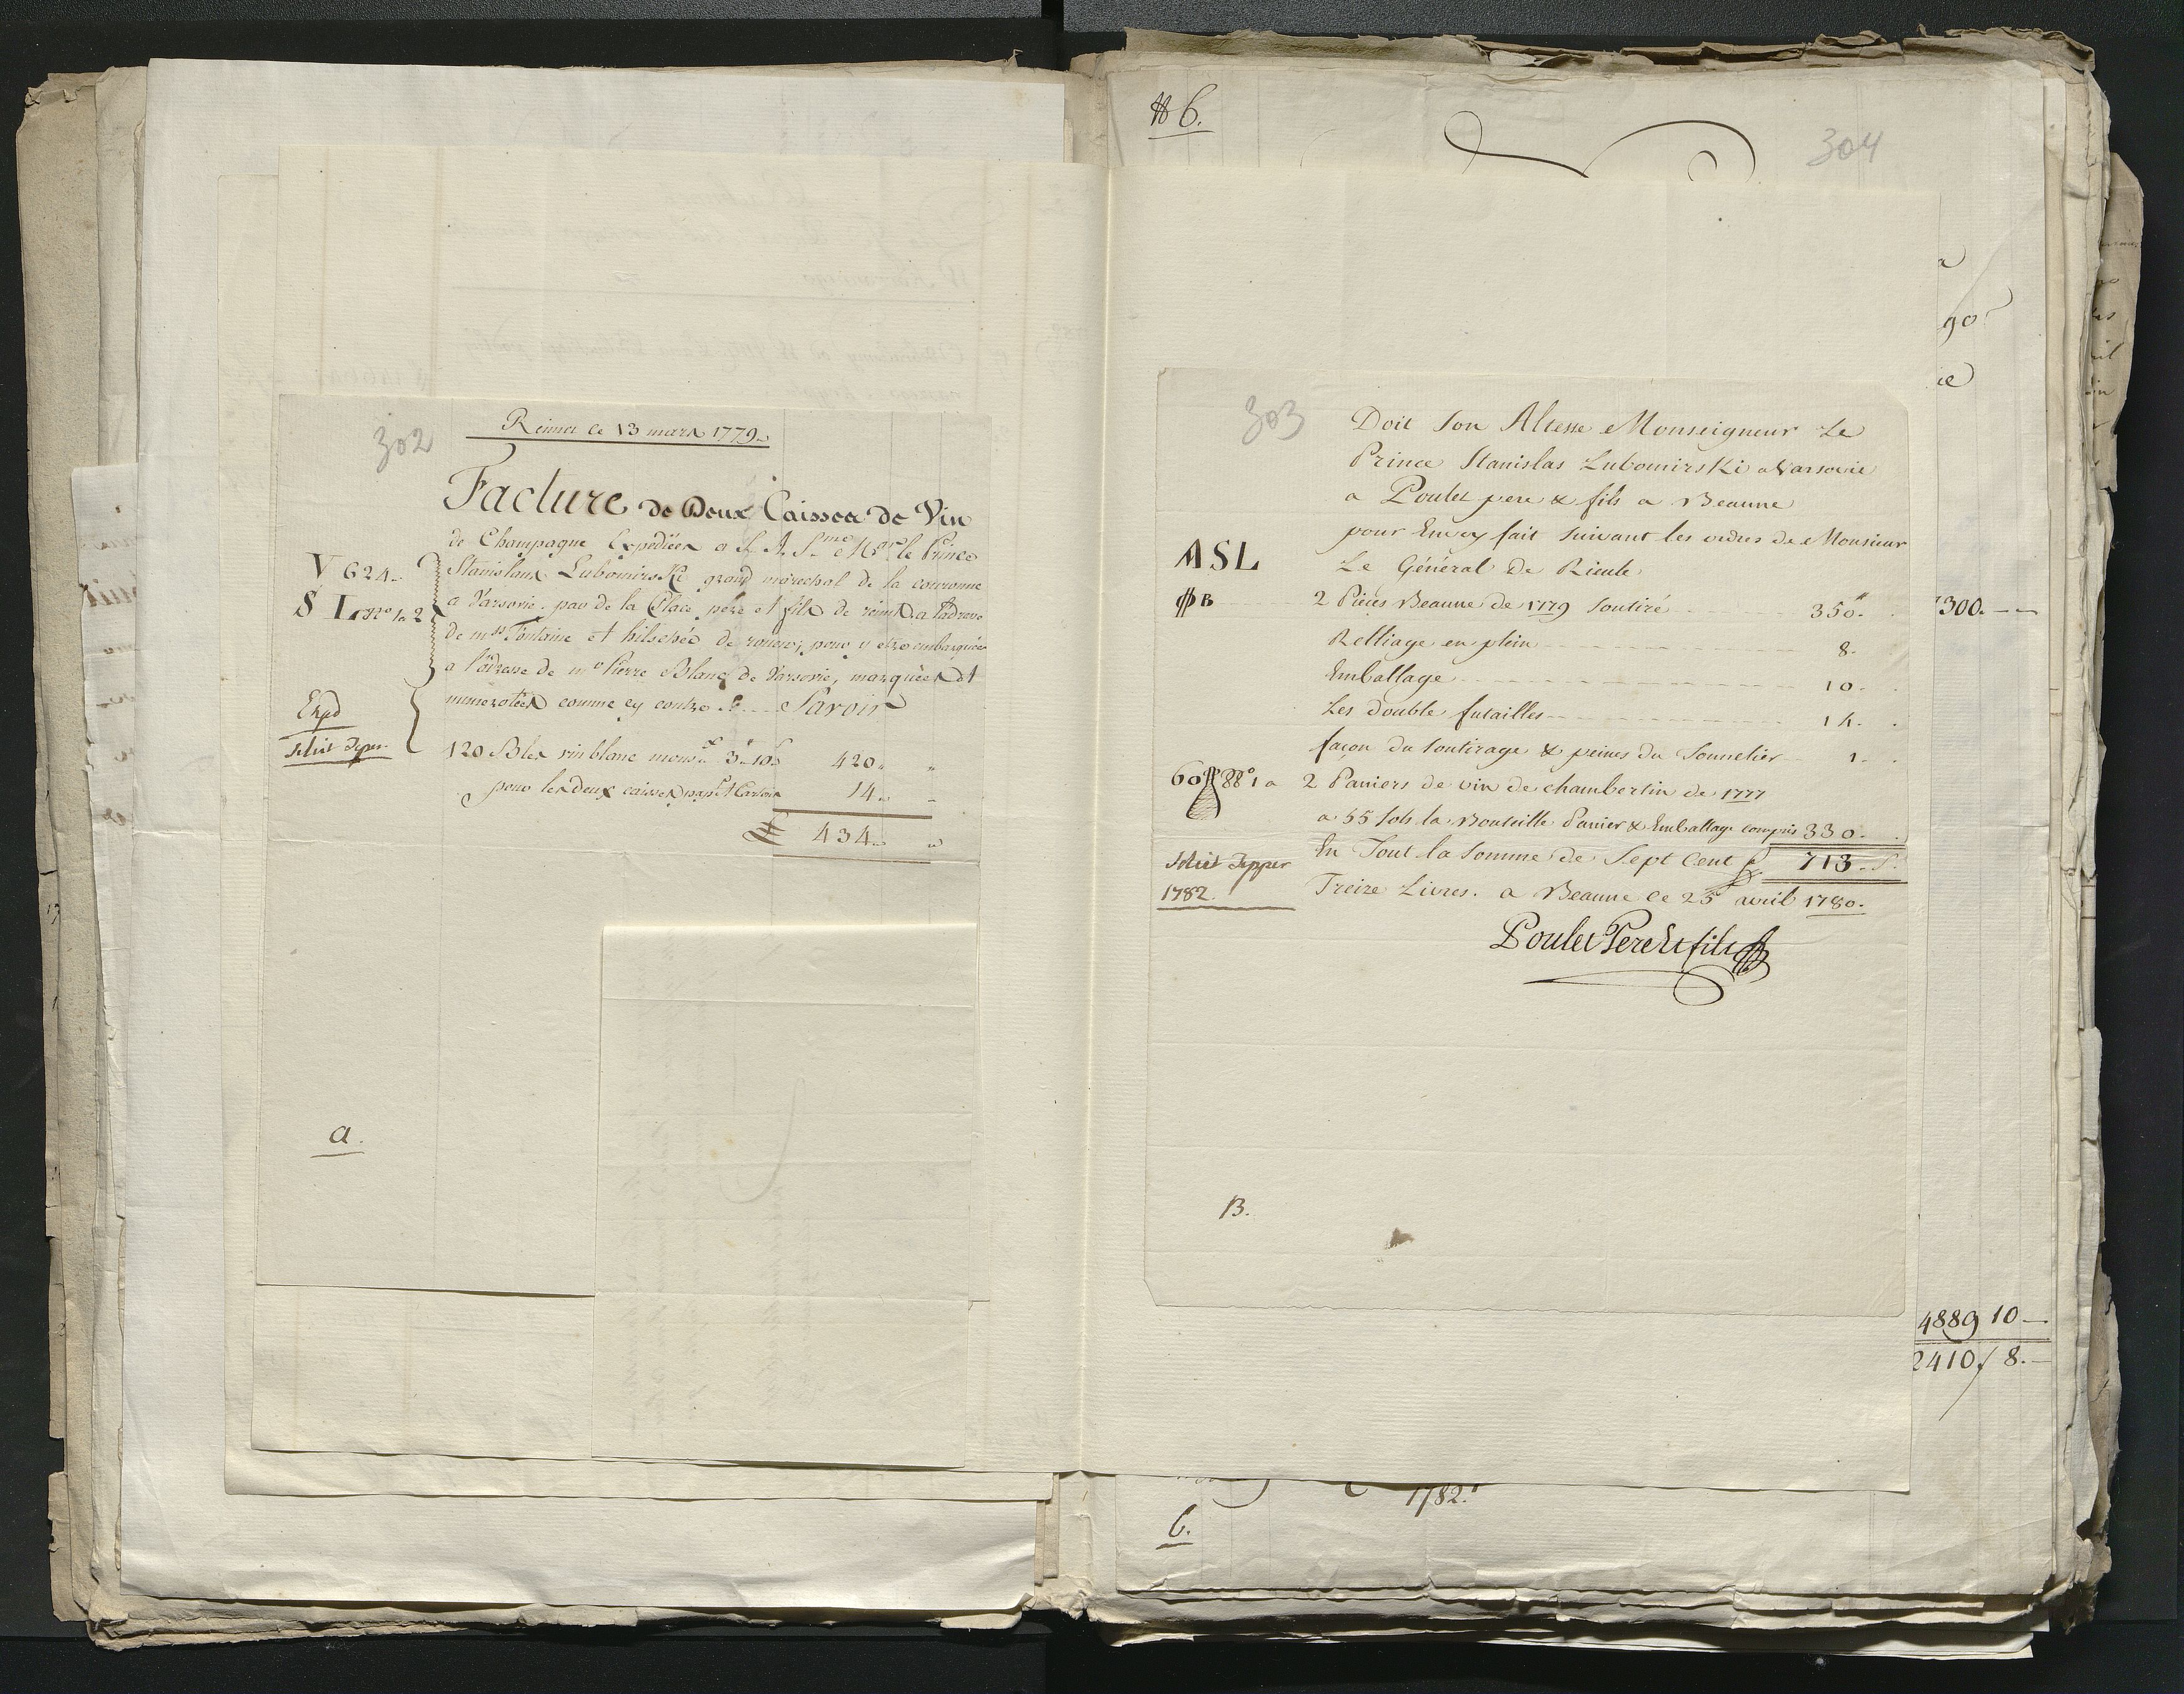 302
Reims le 13 mars 1779.
Facture de Deux Caisses de Vin
de Champagne Expediées a S. A. S.me Mgr le Prince
V 624.
Stanislaus Lubomirski grand marechal de la couronne
S L no 1 a 2
a Varsovie. par de la Place pere et fils de reims a l'adresse
de mrs Fontaine et hilscher de rouen, pour y etre embarquées
a l'adresse de mr Pierre Blanc de Varsovie, marquées et
numerotées comme cy contre Savoir
Expd
solvit Tepper
120 Bles vin blanc mouse. a 3.10 420.
pour les deux caisses 14.
434.
a.
# 6.
304
303
Doit Son Altesse Monseigneur Le
Prince Stanislas Lubomirski a Varsovie
a Poulet pere & fils a Beaune
pour Envoy fait suivant les ordres de Monsieur
ASL
Le Général de Rieule
B
2 Pieces Beaune de 1779 soutiré 350.
Relliage en plein 8.
Emballage 10.
Les double futailles 14.
façon du soutirage & peines du Tonnelier 1.
60 1 a 2 Paniers de vin de chambertin de 1777
a 55 sols la Bouteille Panier & Emballage compris 330.
En Tout la Somme de Sept Cent 713. S.
Treize Livres. a Beaune le 25 avril 1780.
solvit Tepper
1782
Poulet Pere et fils
B.
90
300.
4889 10
2410. 8.
1782.
6.